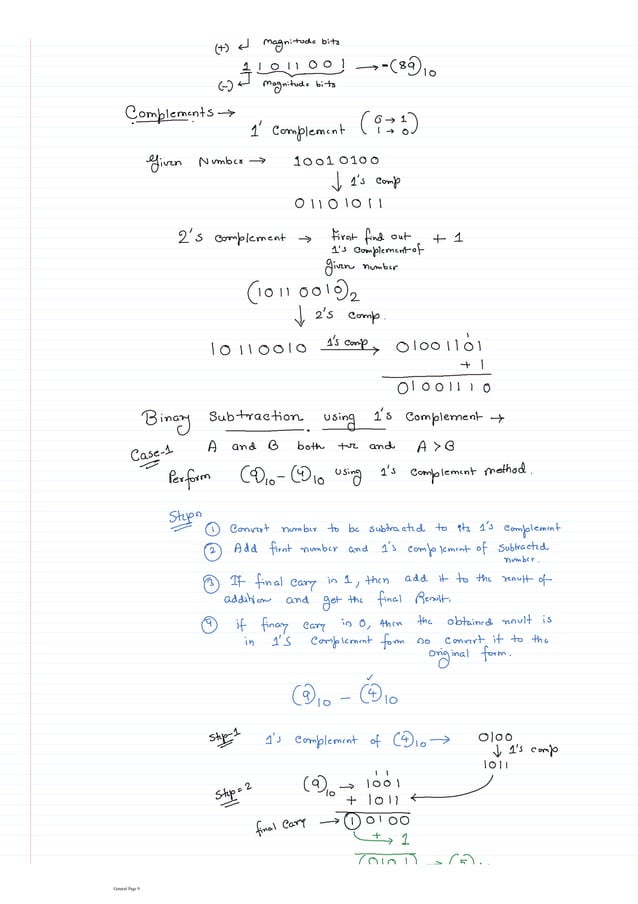 (+) magnitude bits
1 1 0 1 1 0 0 1 → -(89)10
(-) magnitude bits
Complements →
1' Complement (0 → 1
1 → 0)
Given Number → 10010100
↓ 1's comp
01101011
2's complement → First find out + 1
1's complement of
given number
(1011 0010)2
↓ 2's comp.
10110010 1's comp → 01001101
1
+ 1
01001110
Binary Subtraction using 1's Complement →
Case-1 A and B both +ve and A > B
Perform (9)10 - (4)10 using 1's complement method.
Steps
① Convert number to be subtracted to its 1's complement
② Add first number and 1's complement of subtracted
number.
③ If final cary is 1, then add it to the result of
addition and get the final Result.
④ if finay cary is 0, then the obtained result is
in 1'S complement form so convert it to the
original form.
(9)10 - (4)10
Step-1 1's complement of (4)10 → 0100
↓ 1's comp
1011
Step=2 (9)10 → 1001
1 1
+ 1011
final cary → ① 0100
+ 1
(0101) → (5)
General Page 9